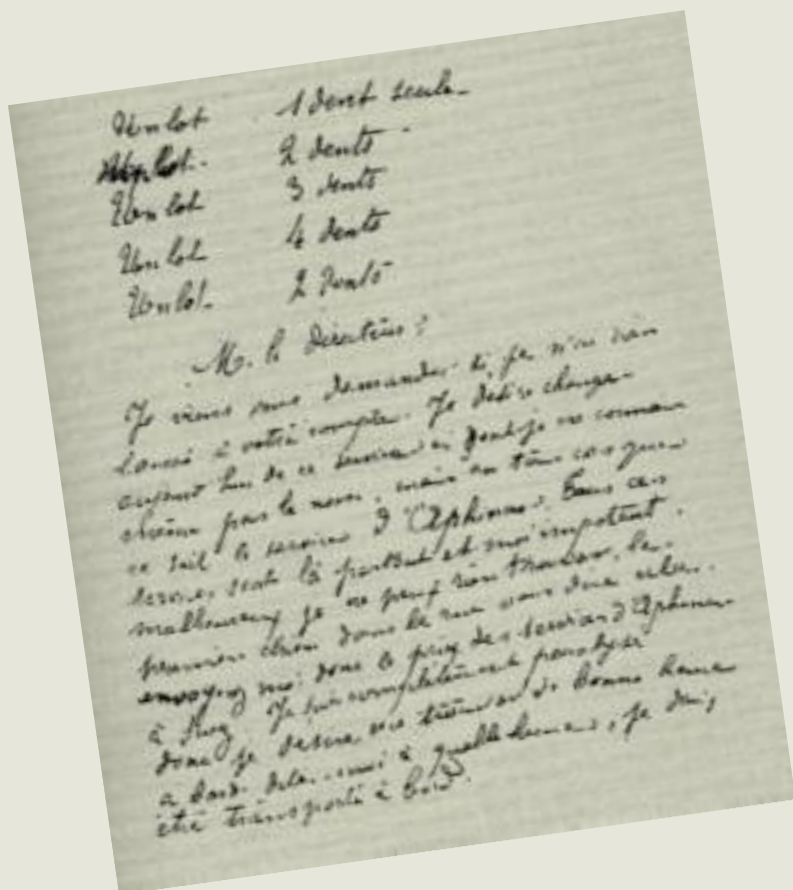 Un lot 1 dent seule.
Un lot. 2 dents -
Un lot 3 dents
Un lot 4 dents
Un lot. 2 dents
M. le Directeur:
Je viens vous demander si je n'ai rien
laissé à votre compte. Je désire changer
aujourd'hui de ce service dont je ne connais
même pas le nom, mais en tous cas que
ce soit le service d'Aphinar. Tous ces
services sont là partout et moi impotent.
malheureux je ne peux rien trouver, le
premier chien dans la rue vous dira cela.
envoyez moi donc le prix des services d'Aphinar
à Suez. Je suis complètement paralysé
donc je désire me trouver de bonne heure
a bord. Dites-moi à quelle heure, je dois
être transporté à bord.